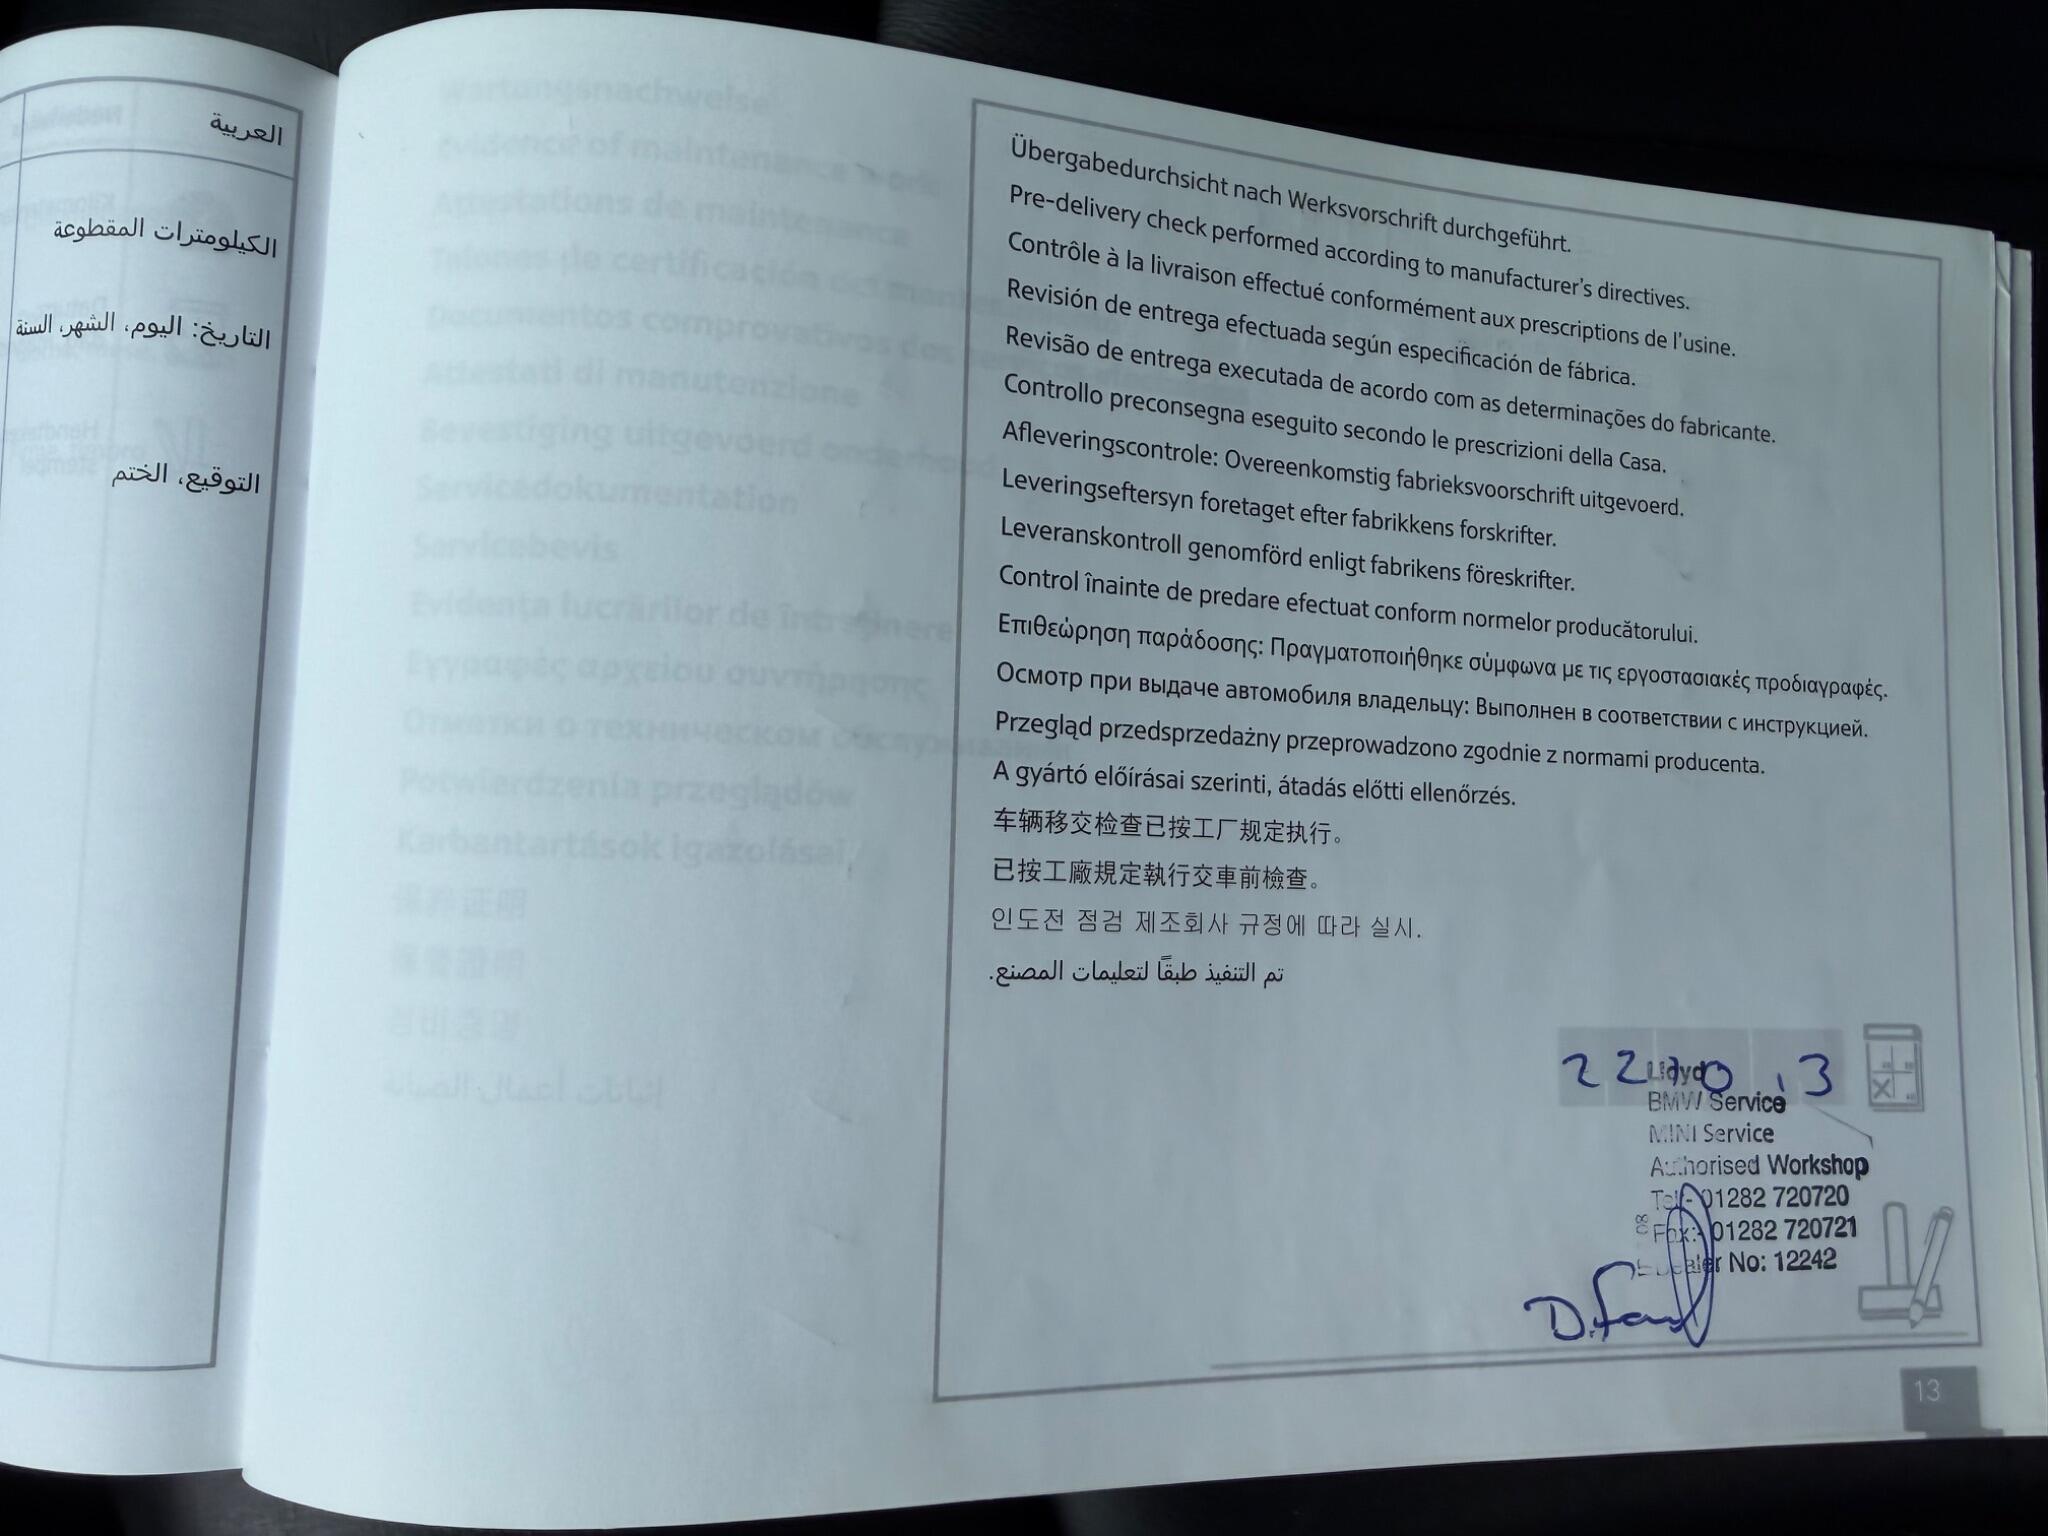 العربية
الكيلومترات المقطوعة
التاريخ: اليوم، الشهر، السنة
التوقيع، الختم
Übergabedurchsicht nach Werksvorschrift durchgeführt.
Pre-delivery check performed according to manufacturer's directives.
Contrôle à la livraison effectué conformément aux prescriptions de l'usine.
Revisión de entrega efectuada según especificación de fábrica.
Revisão de entrega executada de acordo com as determinações do fabricante.
Controllo preconsegna eseguito secondo le prescrizioni della Casa.
Afleveringscontrole: Overeenkomstig fabrieksvoorschrift uitgevoerd.
Leveringseftersyn foretaget efter fabrikkens forskrifter.
Leveranskontroll genomförd enligt fabrikens föreskrifter.
Control înainte de predare efectuat conform normelor producătorului.
Επιθεώρηση παράδοσης: Πραγματοποιήθηκε σύμφωνα με τις εργοστασιακές προδιαγραφές.
Осмотр при выдаче автомобиля владельцу: Выполнен в соответствии с инструкцией.
Przegląd przedsprzedażny przeprowadzono zgodnie z normami producenta.
A gyártó előírásai szerinti, átadás előtti ellenőrzés.
车辆移交检查已按工厂规定执行。
已按工廠規定執行交車前檢查。
인도전 점검 제조회사 규정에 따라 실시.
تم التنفيذ طبقًا لتعليمات المصنع.
22 10 13
Lloyd
BMW Service
MINI Service
Authorised Workshop
Tel:- 01282 720720
Fax:- 01282 720721
Dealer No: 12242
13